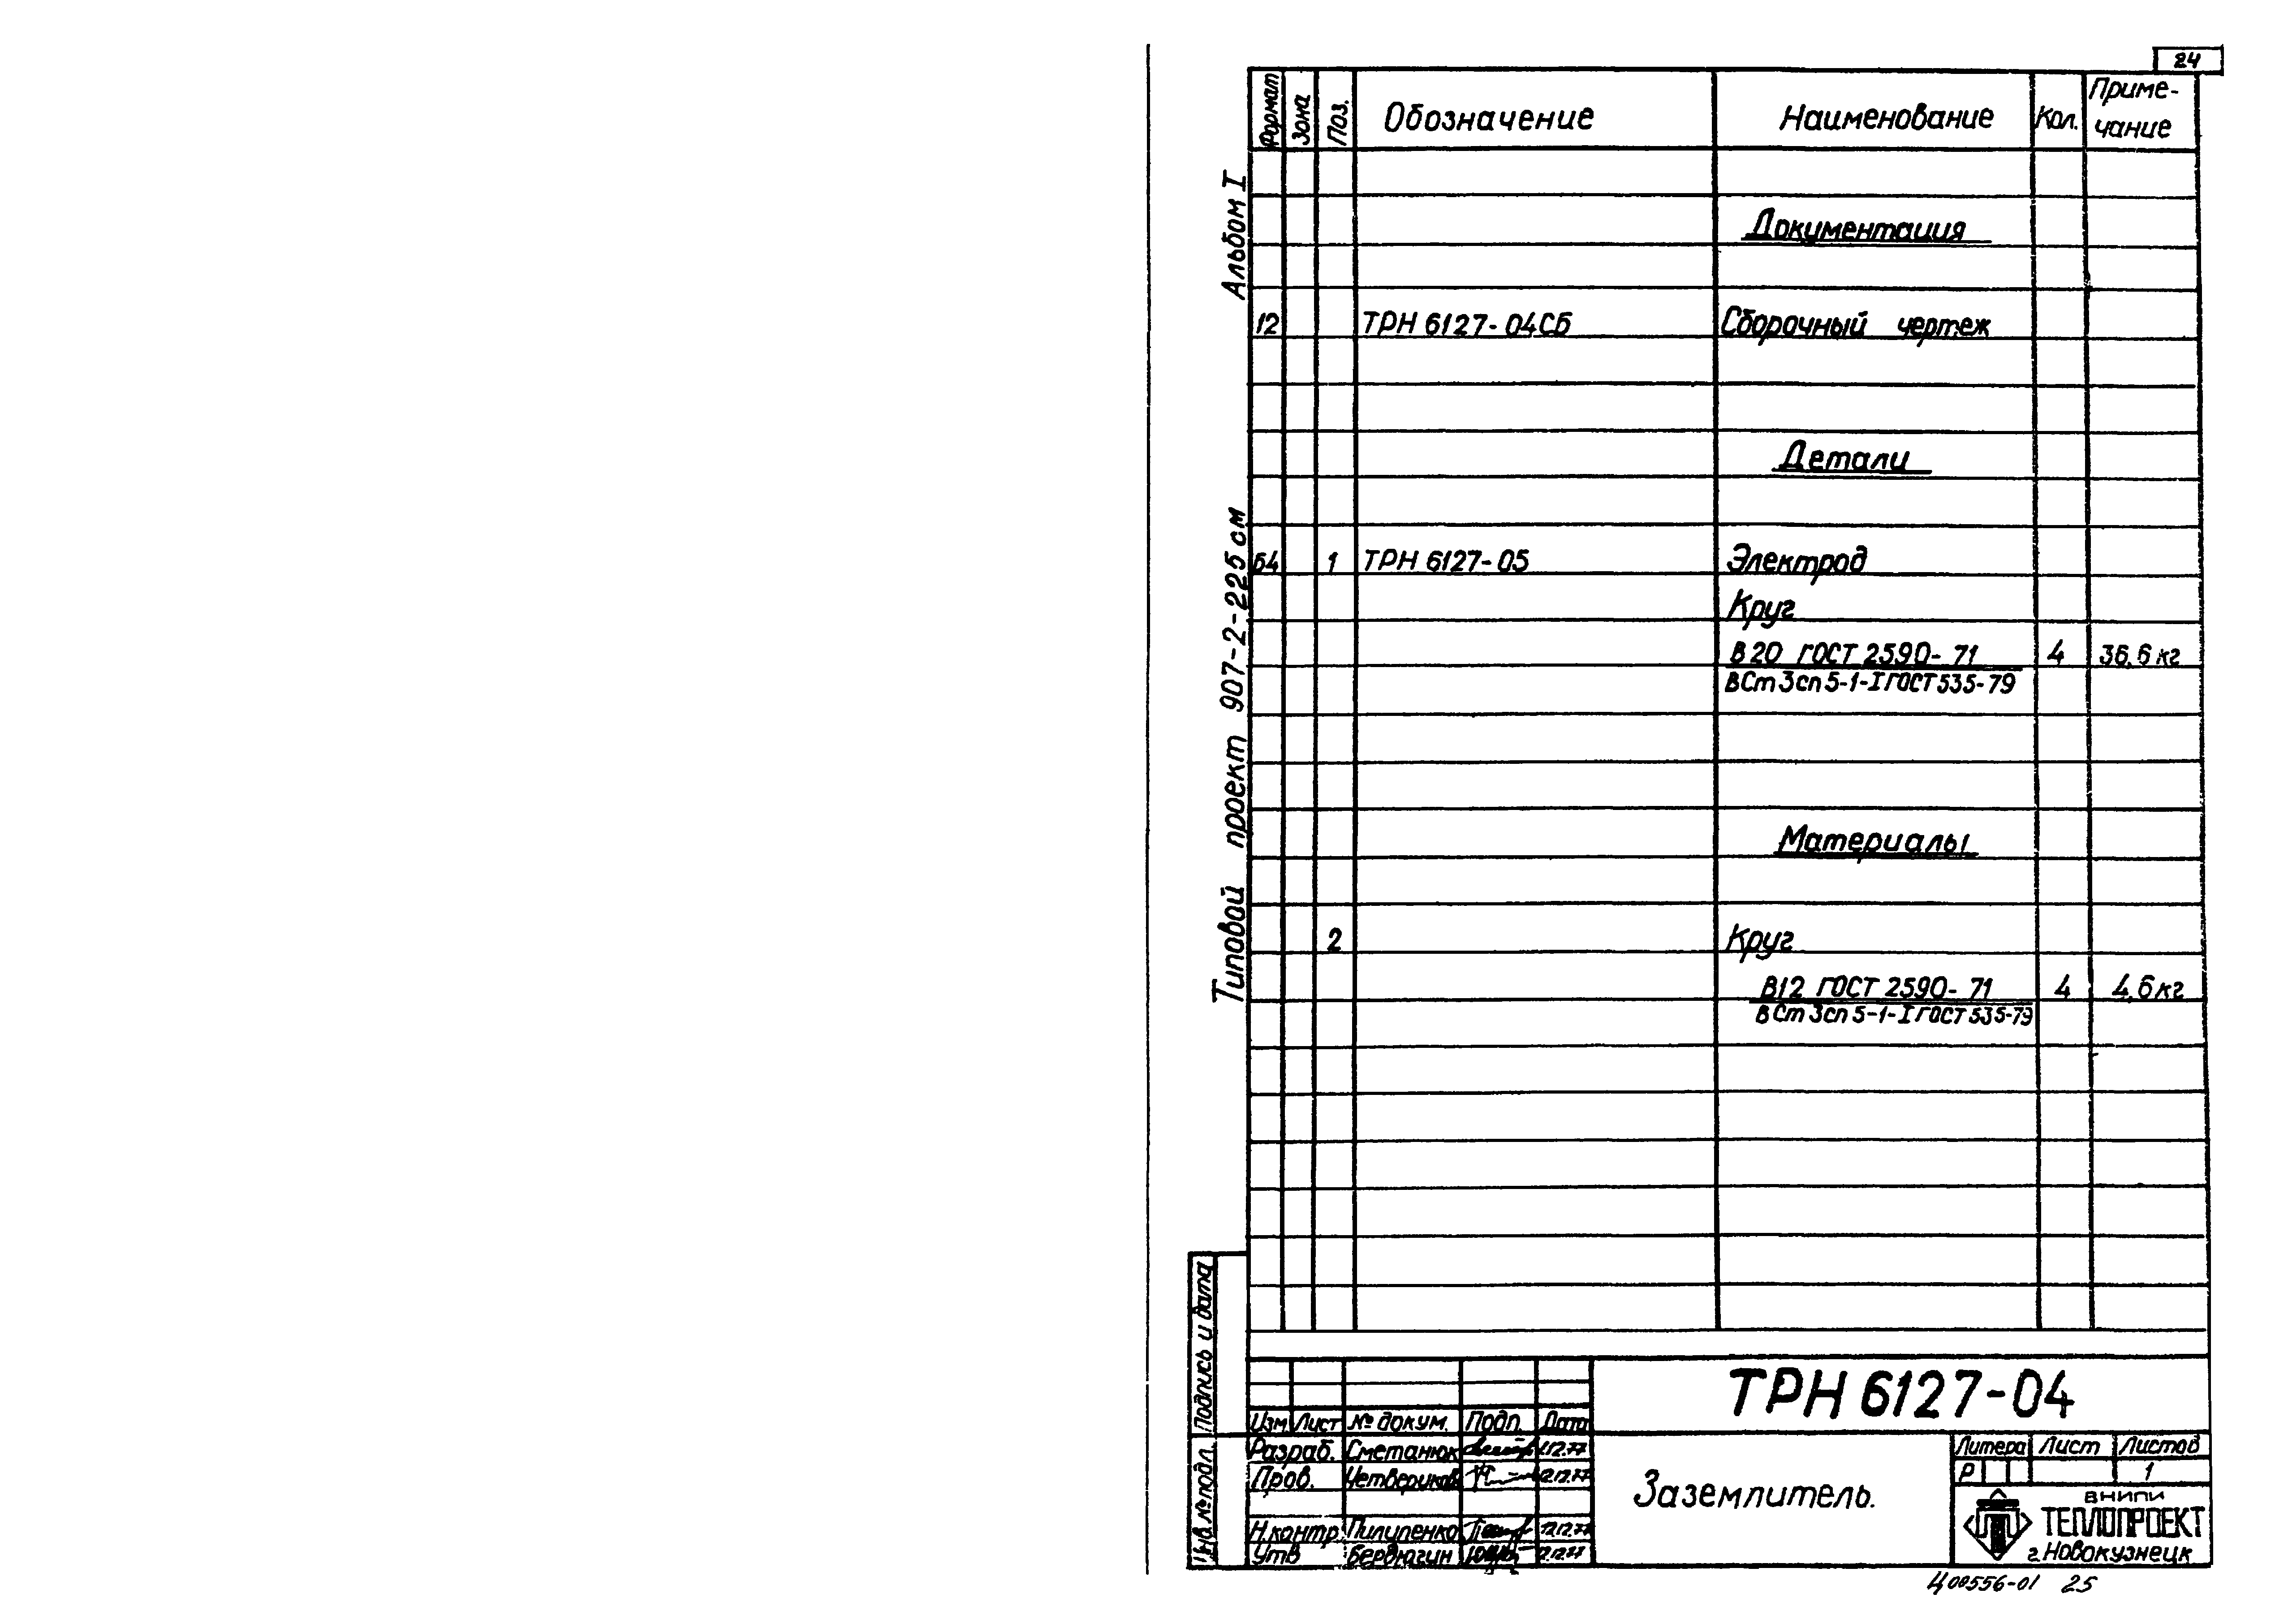 24
Формат Зона Поз. Обозначение Наименование Кол. Приме-
чание
Документация
12 ТРН 6127-04СБ Сборочный чертеж
Детали
Б4 1 ТРН 6127-05 Электрод
Круг
В20 ГОСТ 2590-71 4 36,6 кг
ВСт3сп5-1-I ГОСТ 535-79
Материалы
2 Круг
В12 ГОСТ 2590-71 4 4,6 кг
ВСт3сп5-1-I ГОСТ 535-79
Альбом I
Типовой проект 907-2-225 см
Подпись и дата
Инв.№подл.
ТРН 6127-04
Изм. Лист № докум. Подп. Дата
Разраб. Сметанюк 12.77
Пров. Четвериков 12.12.77
Н.контр. Пилипенко 12.12.77
Утв Бервюгин 12.12.77
Заземлитель.
Литера Лист Листов
Р 1
ВНИПИ
ТЕПЛОПРОЕКТ
г.Новокузнецк
400556-01 25